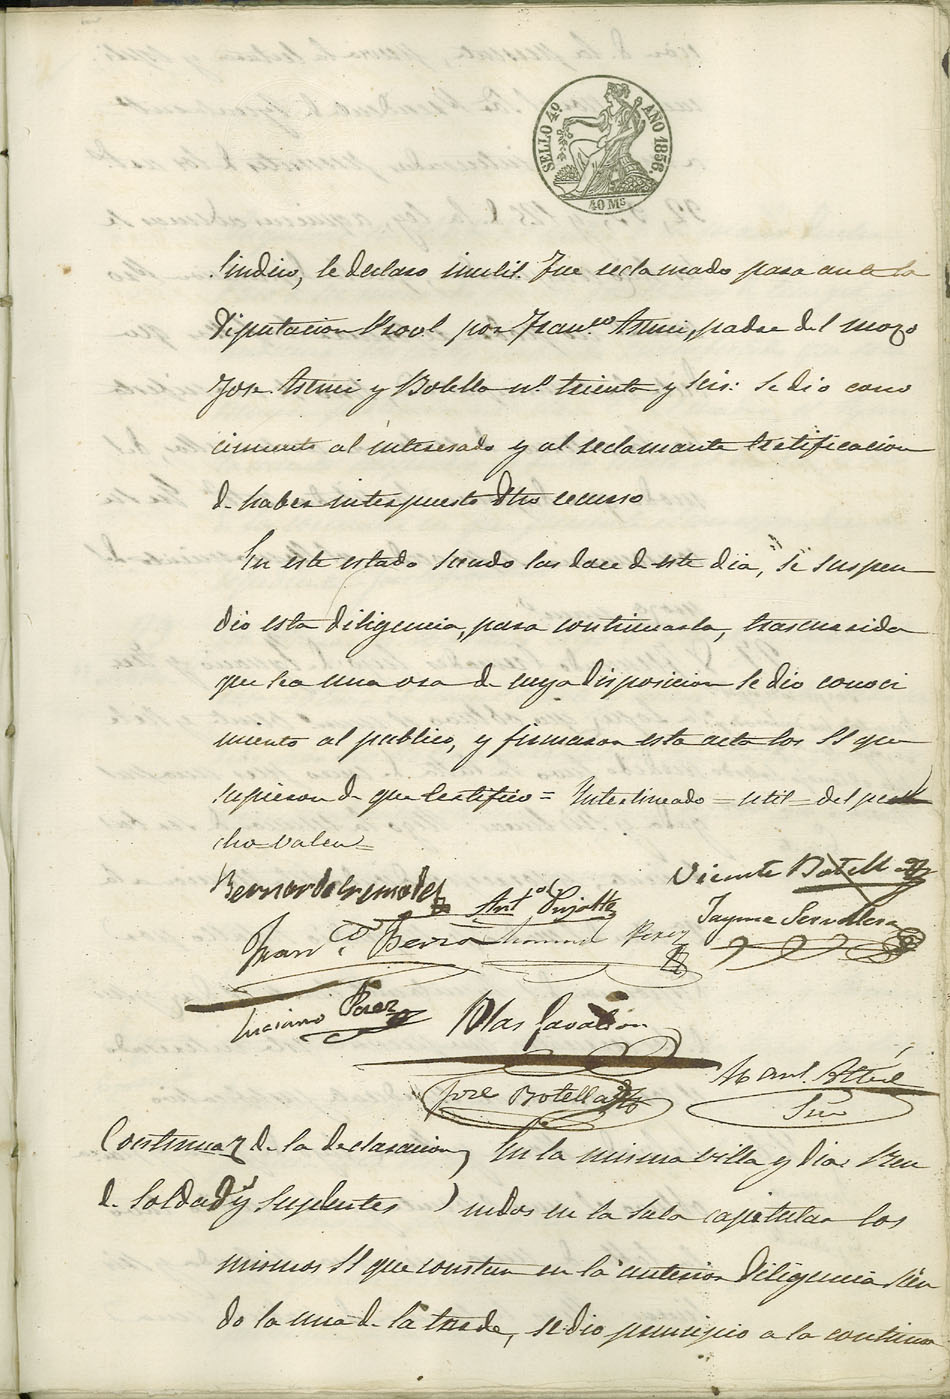 SELLO 4º AÑO 1856.
40 Ms
Sindico, le declaro inutil. Fue reclamado para ante la
Diputacion Provl. por Franco. Asnar, padre del mozo
José Asnar y Botella nº. treinta y seis: Se dio cono
cimiento al interesado y al reclamante Certificacion
de haber interpuesto dho recurso
En este estado siendo las doce de este dia, se suspen
dio esta diligencia, para continuarla, trascurrida
que sea una ora de cuya disposicion se dio conoci
miento al publico, y firmaron esta acta los SS que
supieron de que Certifico = Interlineado = util = del
cho = valen =
Vicente Botella
Antol.
Jayme
Franco. Perez
Luciano Perez
Blas
José Botella
Manl.
Srio
Continuazn de la declaracion En la misma villa y dia: Reu
de Soldads y Suplentes ) nidos en la Sala capitular los
mismos SS que constan en la anterior diligencia sien
do la una de la tarde, se dio principio a la continua